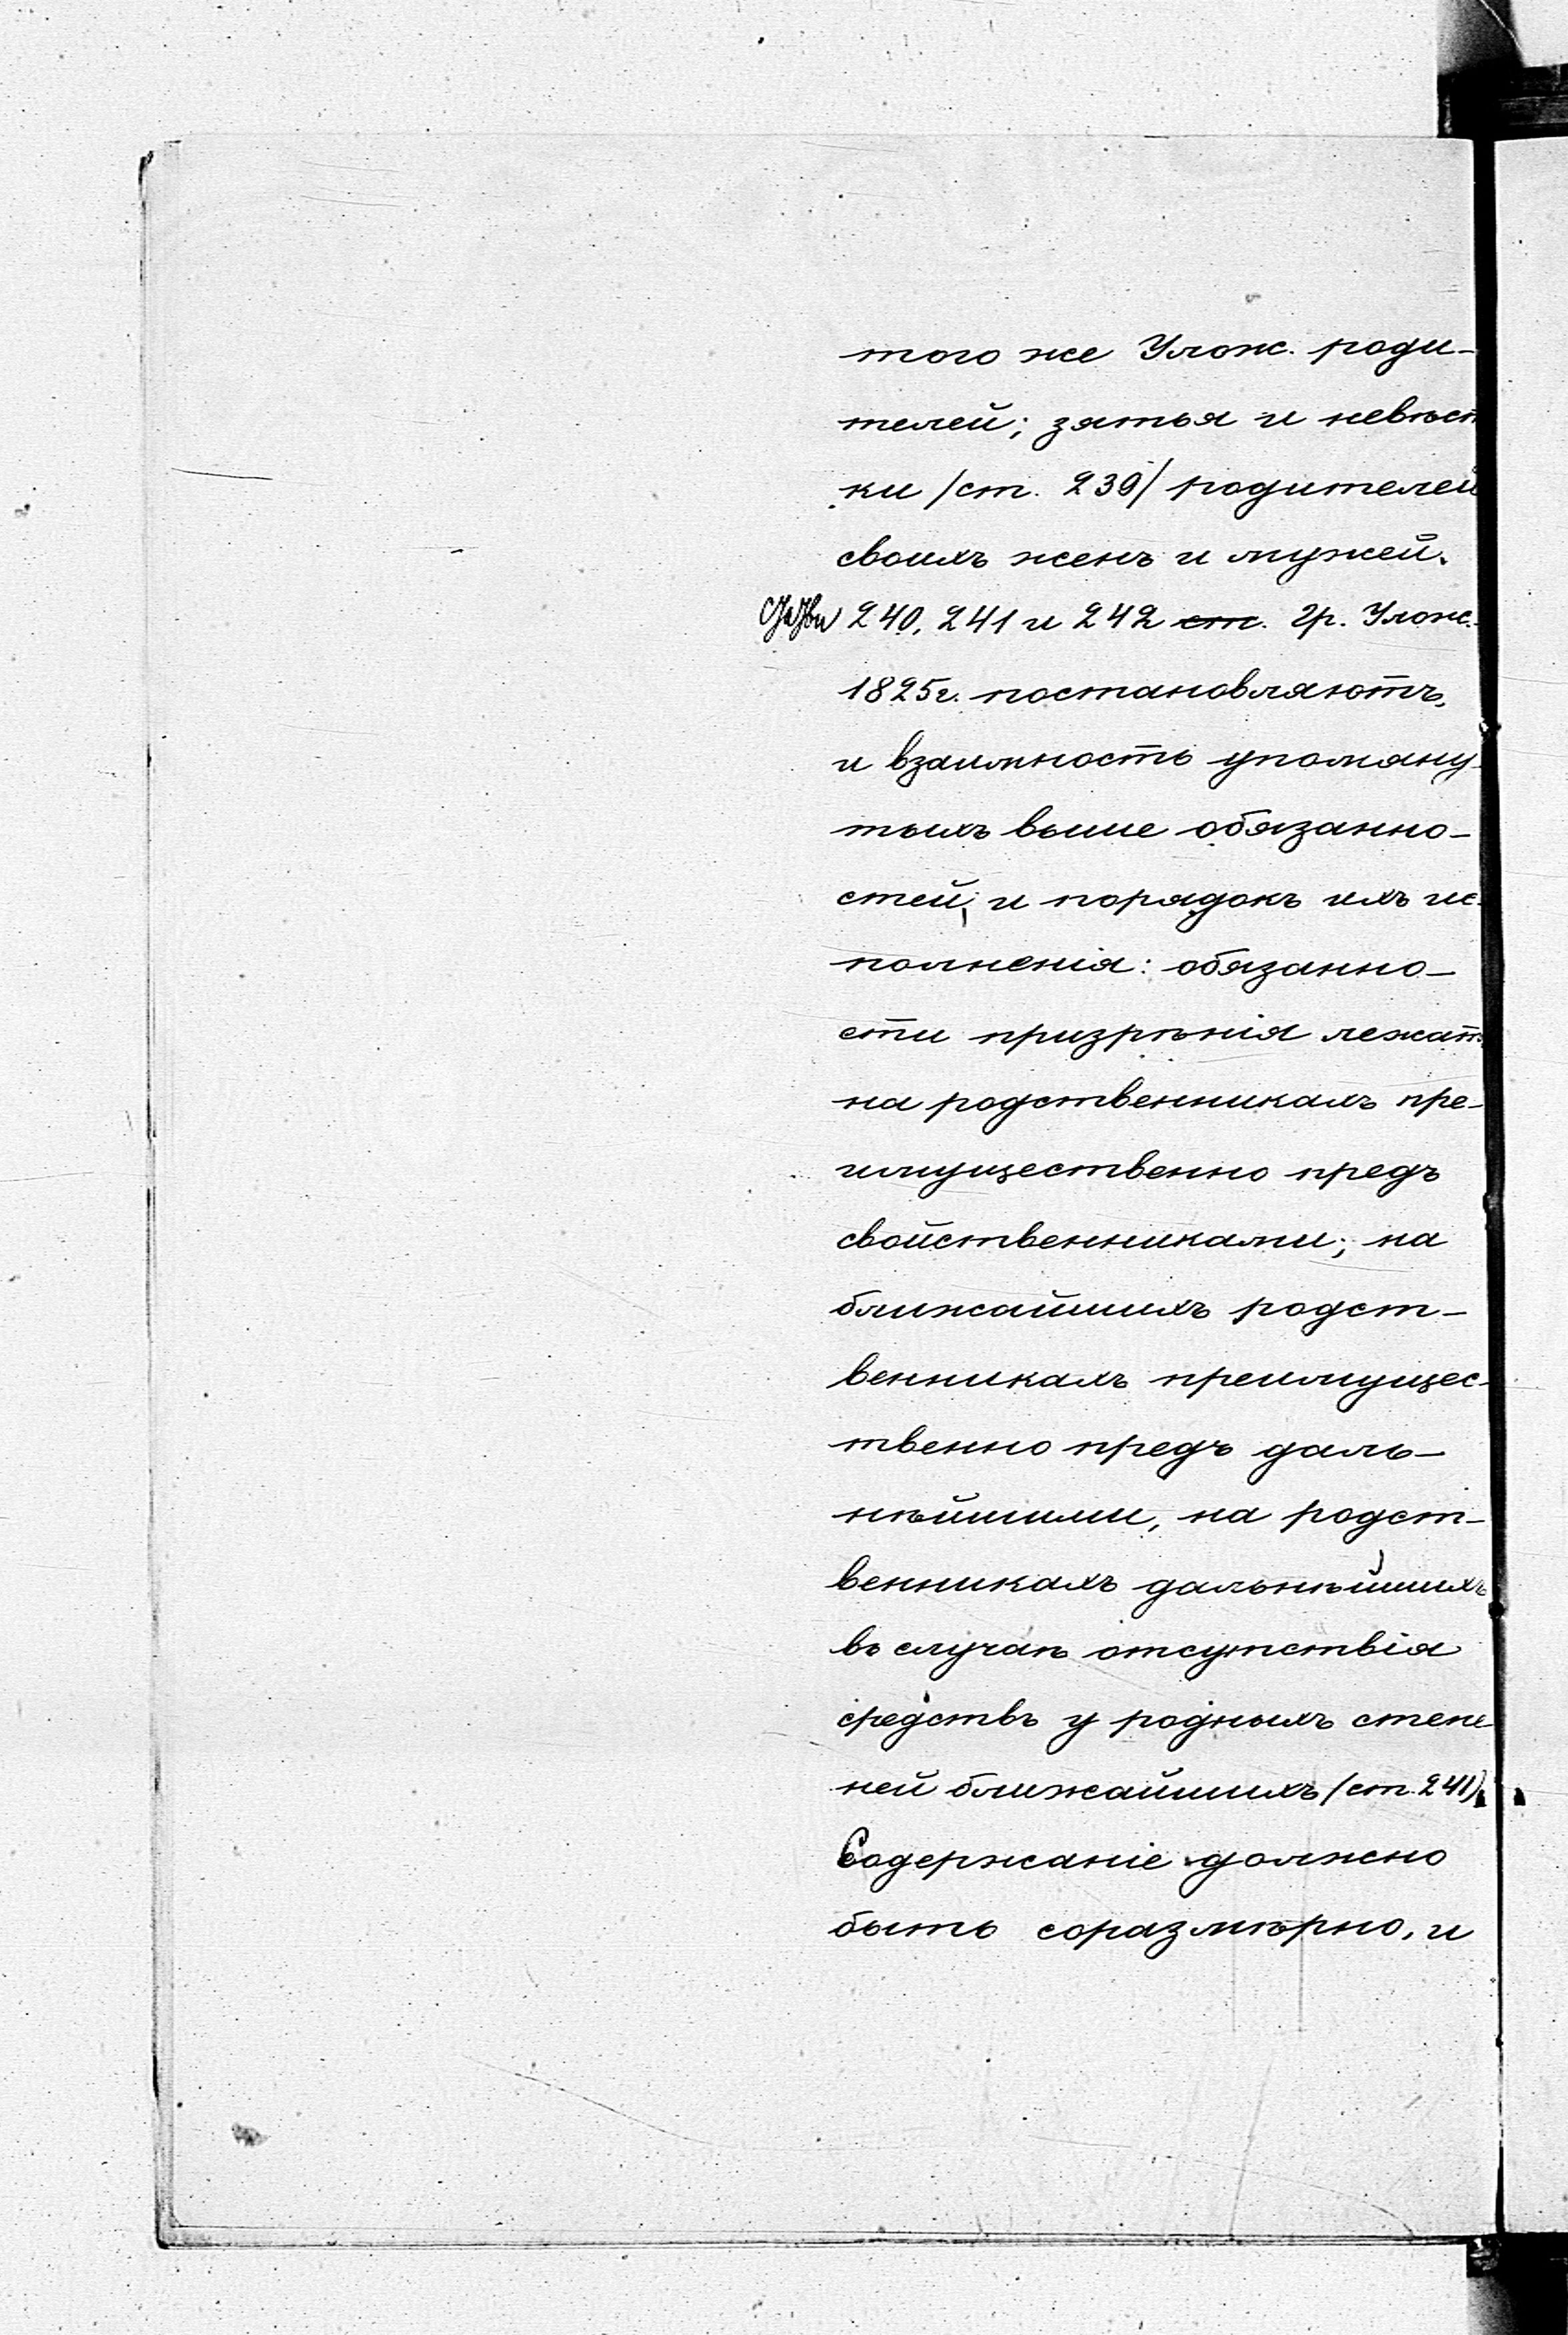 того же Улож. роди-
телей; зятья и невѣст
ки /ст. 239/ родителей
своихъ женъ и мужей.
Статьи 240, 241 и 242 ст. Гр. Улож.
1825г. постановляютъ,
и взаимность упомяну-
тыхъ выше обязанно-
стей, и порядокъ ихъ ис-
полненія: обязанно-
сти призрѣнія лежатъ
на родственникахъ пре-
имущественно предъ
свойственниками; на
ближайшихъ родст-
венникахъ преимущес-
твенно предъ даль-
нѣйшими, на родст-
венникахъ дальнѣйшихъ
въ случаѣ отсутствія
средствъ у родныхъ степе
ней ближайшихъ /ст. 241/.
Содержаніе должно
быть соразмѣрно, и